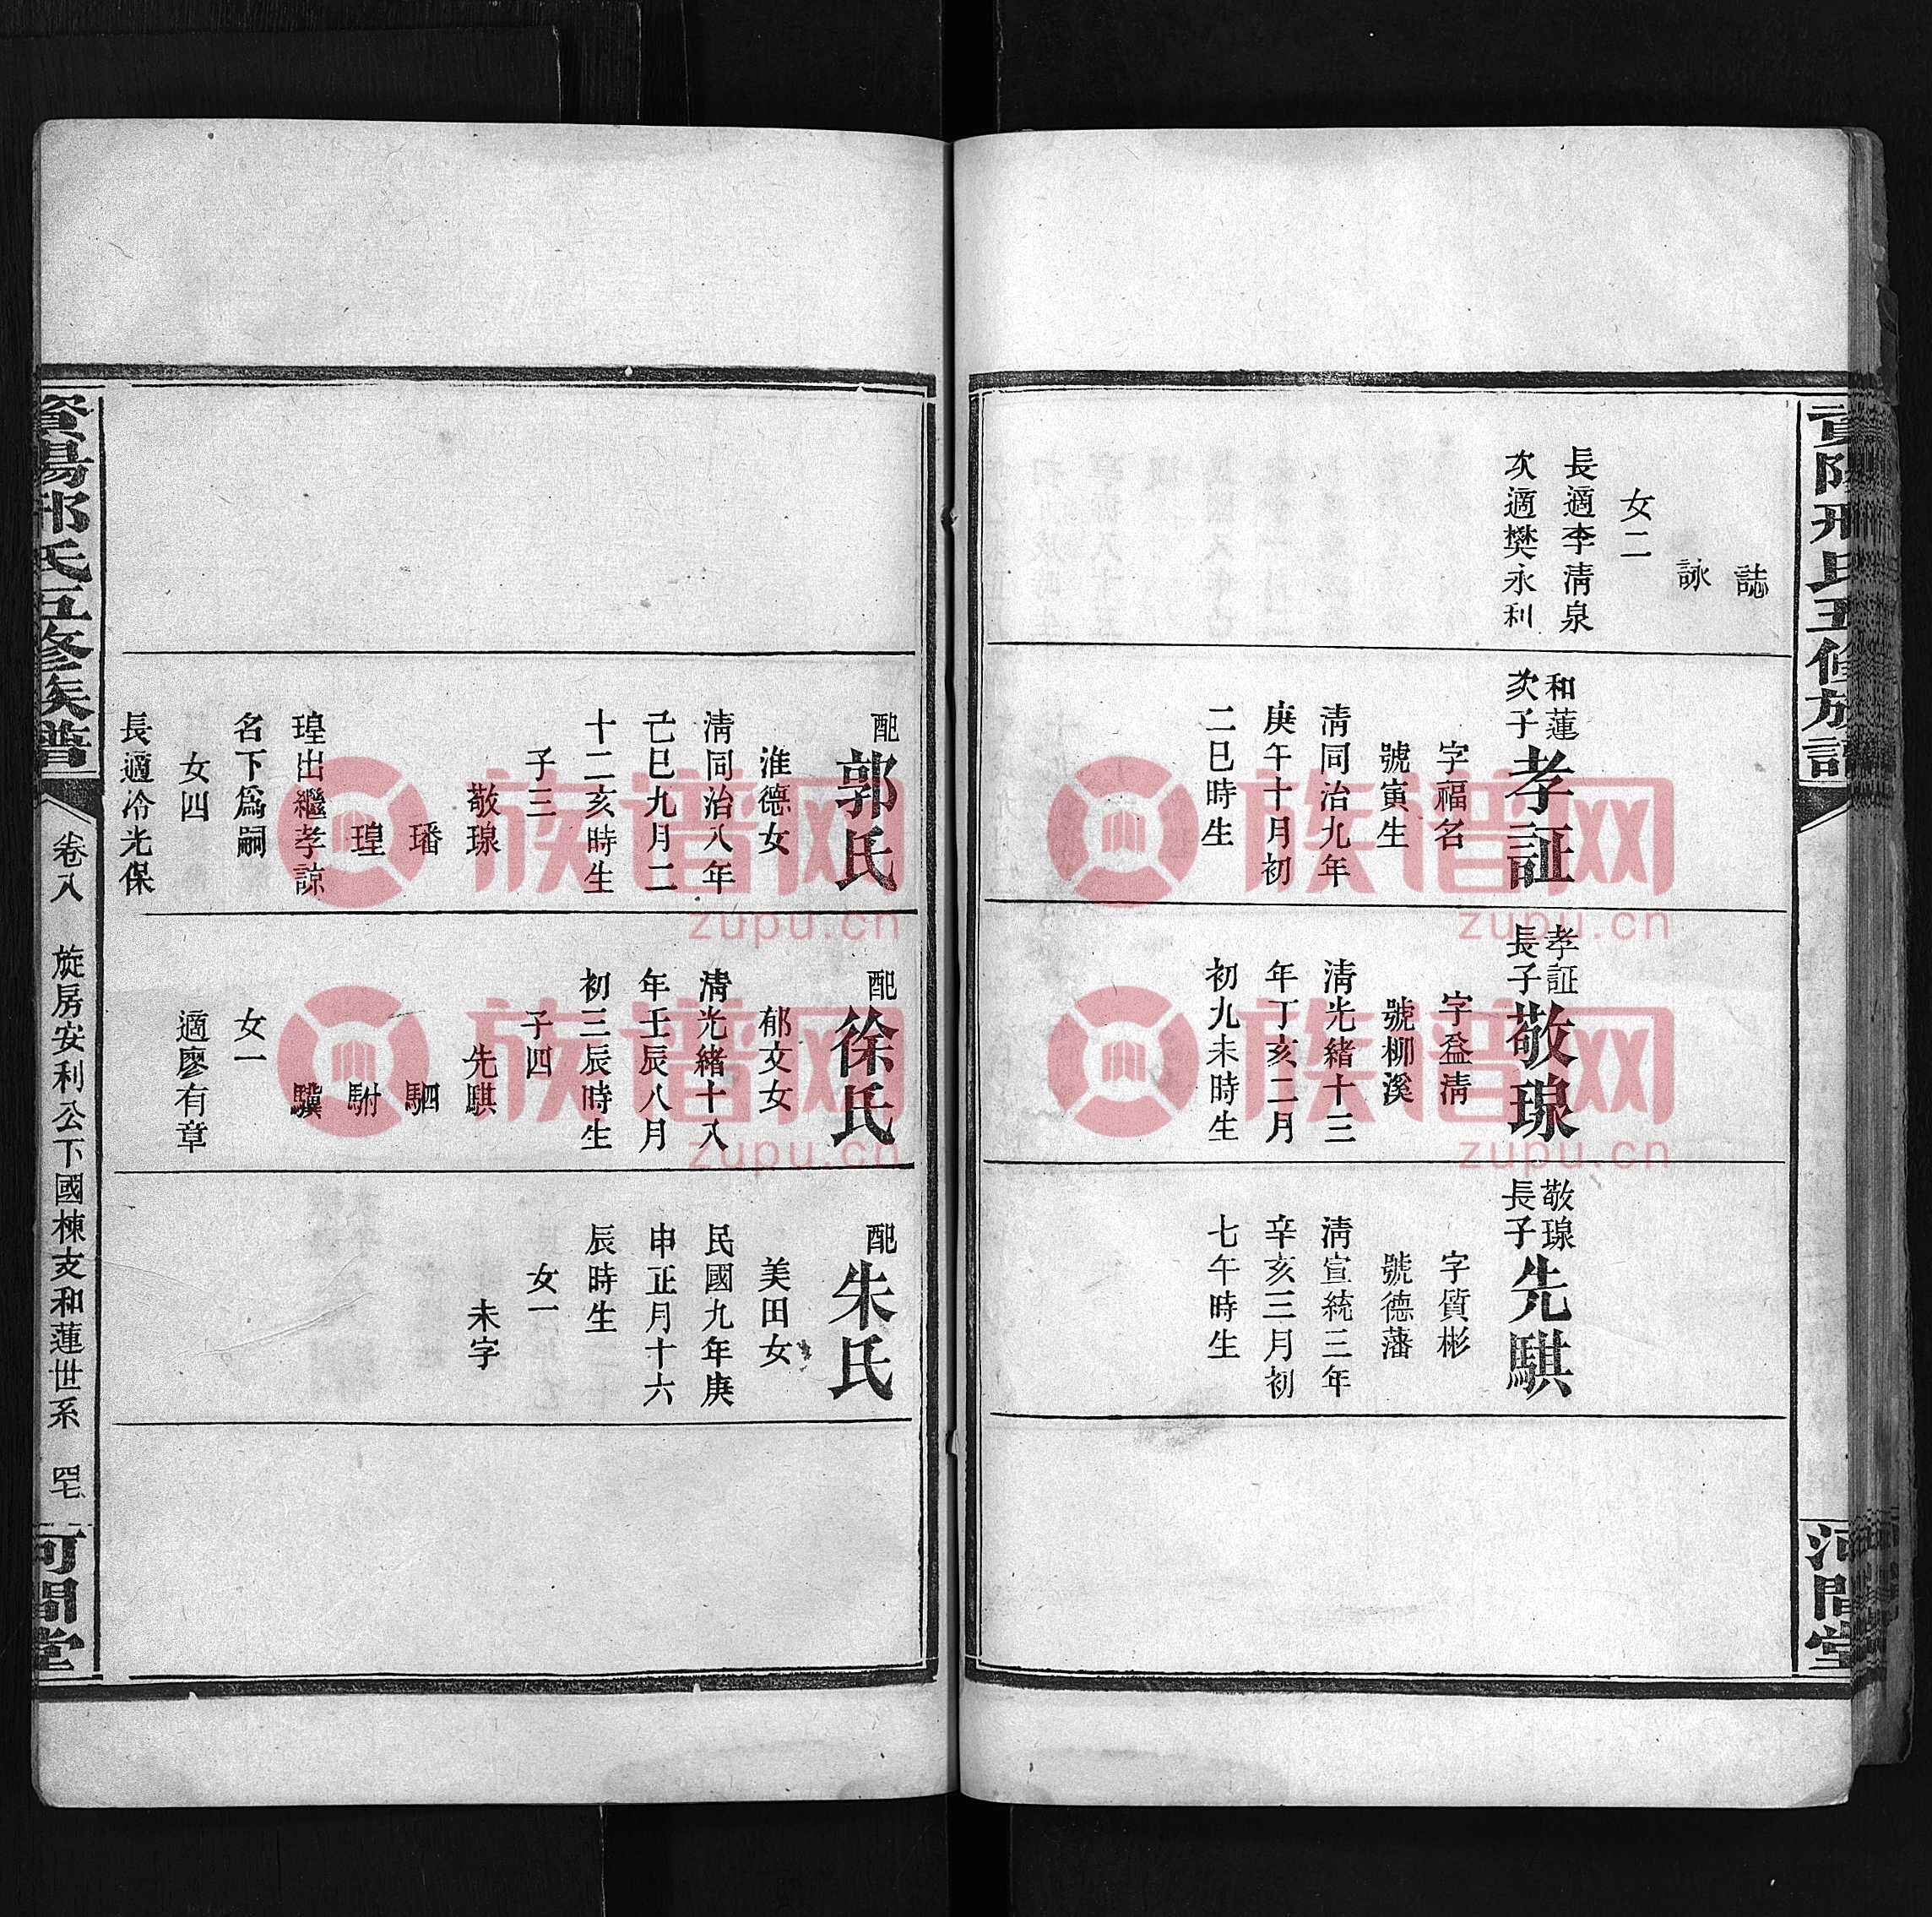 誌
詠
女二
長適李清泉
次適樊永利
和蓮
次子
孝証
字福名
號寅生
清同治九年
庚午十月初
二巳時生
孝証
長子
敬瑔
字盈清
號柳溪
清光緒十三
年丁亥二月
初九未時生
敬瑔
長子
先騏
字質彬
號德藩
清宣統三年
辛亥三月初
七午時生
河間堂
配
郭氏
淮德女
清同治八年
己巳九月二
十二亥時生
子三
敬瑔
璠
瑝
瑝出繼孝諒
名下為嗣
女四
長適冷光保
配
徐氏
郁文女
清光緒十八
年壬辰八月
初三辰時生
子四
先騏
駟
駙
驥
女一
適廖有章
配
朱氏
美田女
民國九年庚
申正月十六
辰時生
女一
未字
卷八
旋房安利公下國棟支和蓮世系
河間堂
族谱网
zupu.cn
族谱网
zupu.cn
族谱网
zupu.cn
族谱网
zupu.cn